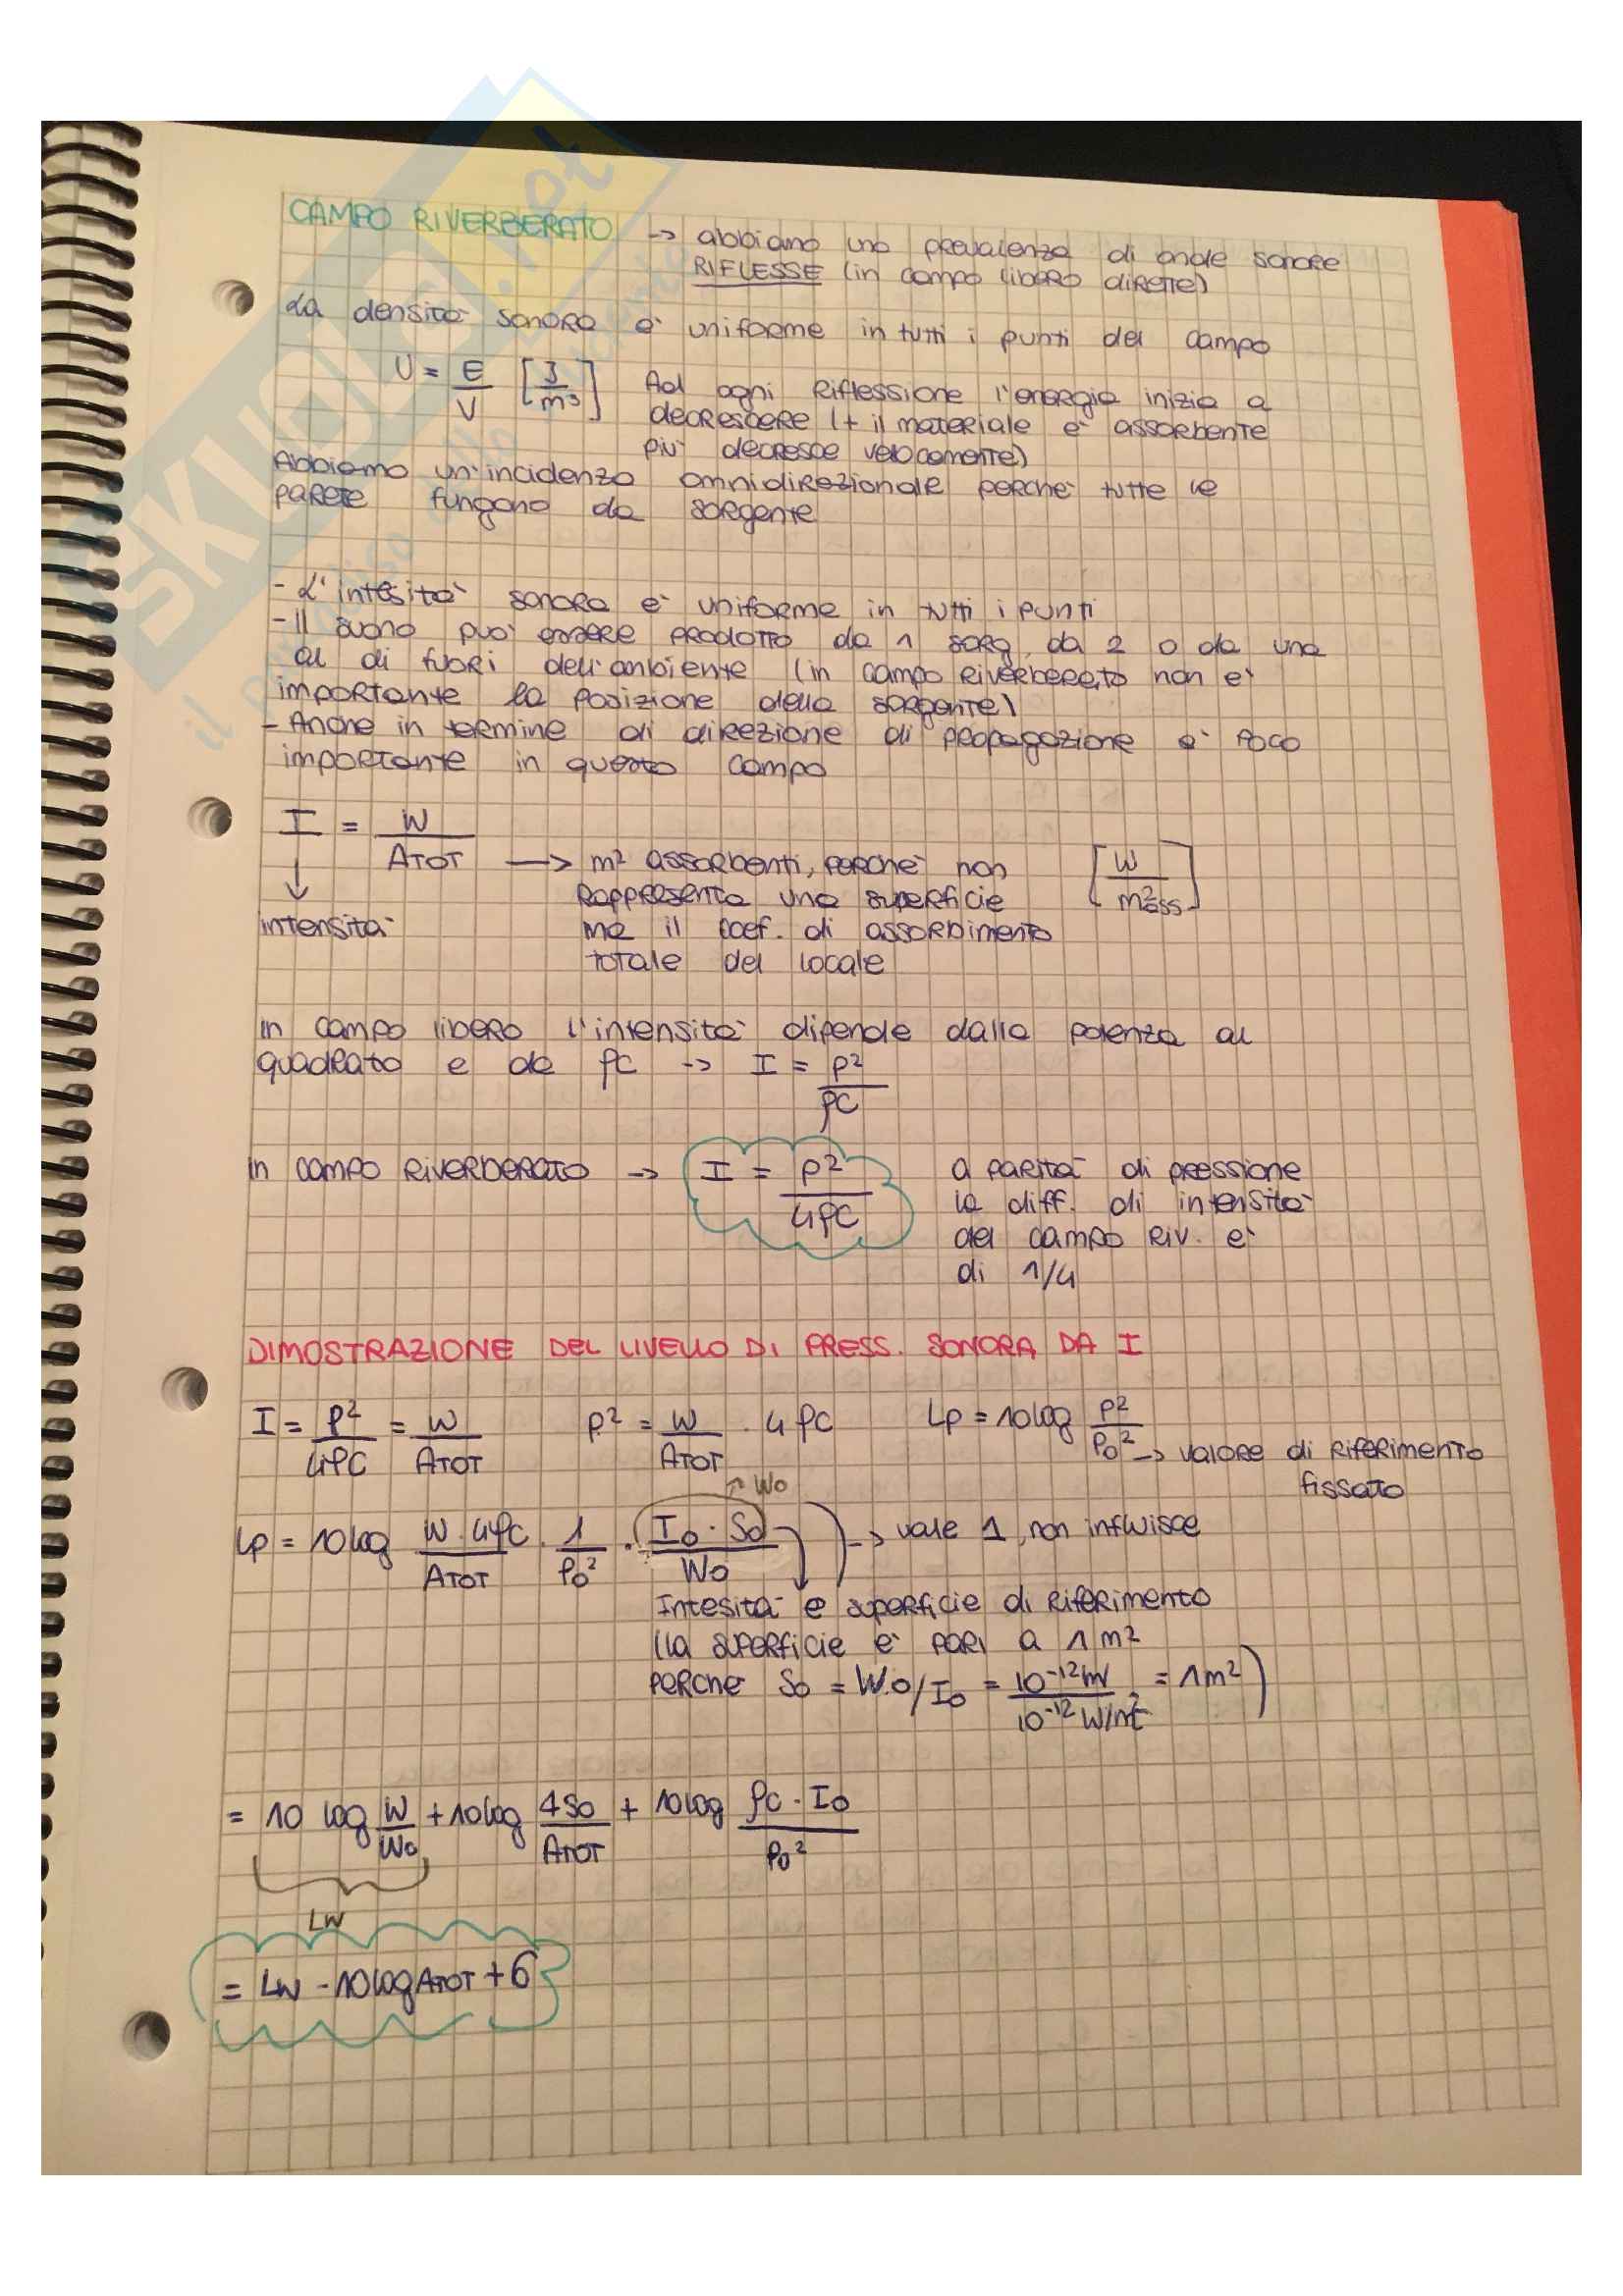 CAMPO RIVERBERATO → abbiamo una prevalenza di onde sonore
RIFLESSE (in campo libero dirette)
La densità sonora è uniforme in tutti i punti del campo
U = E/V [J/m³] Ad ogni riflessione l'energia inizia a
decrescere (+ il materiale è assorbente
più decresce velocemente)
Abbiamo un'incidenza omnidirezionale perché tutte le
parete fungono da sorgente
- L'intesità sonora è uniforme in tutti i punti
- Il suono può essere prodotto da 1 sorg, da 2 o da una
al di fuori dell'ambiente (in campo riverberato non è
importante la posizione della sorgente)
- Anche in termine di direzione di propagazione è poco
importante in questo campo
I = W/ATOT → m² assorbenti, perché non [W/m²ass]
rappresenta una superficie
intensità ma il coef. di assorbimento
totale del locale
In campo libero l'intensità dipende dalla potenza al
quadrato e da ρc → I = p²/ρc
In campo riverberato → I = p²/4ρc a parità di pressione
la diff. di intensità
del campo riv. è
di 1/4
DIMOSTRAZIONE DEL LIVELLO DI PRESS. SONORA DA I
I = p²/4ρc = W/ATOT p² = W/ATOT · 4ρc Lp = 10 log p²/p0² → valore di riferimento
fissato
→ W0
Lp = 10 log W·4ρc/ATOT · 1/p0² · I0·S0/W0 → vale 1, non influisce
Intesità e superficie di riferimento
(la superficie è pari a 1 m²
perché S0 = W0/I0 = 10⁻¹²W/10⁻¹² W/m² = 1m²)
= 10 log W/W0 + 10 log 4S0/ATOT + 10 log ρc·I0/p0²
LW
= LW - 10 log ATOT + 6
SKUOLA.net